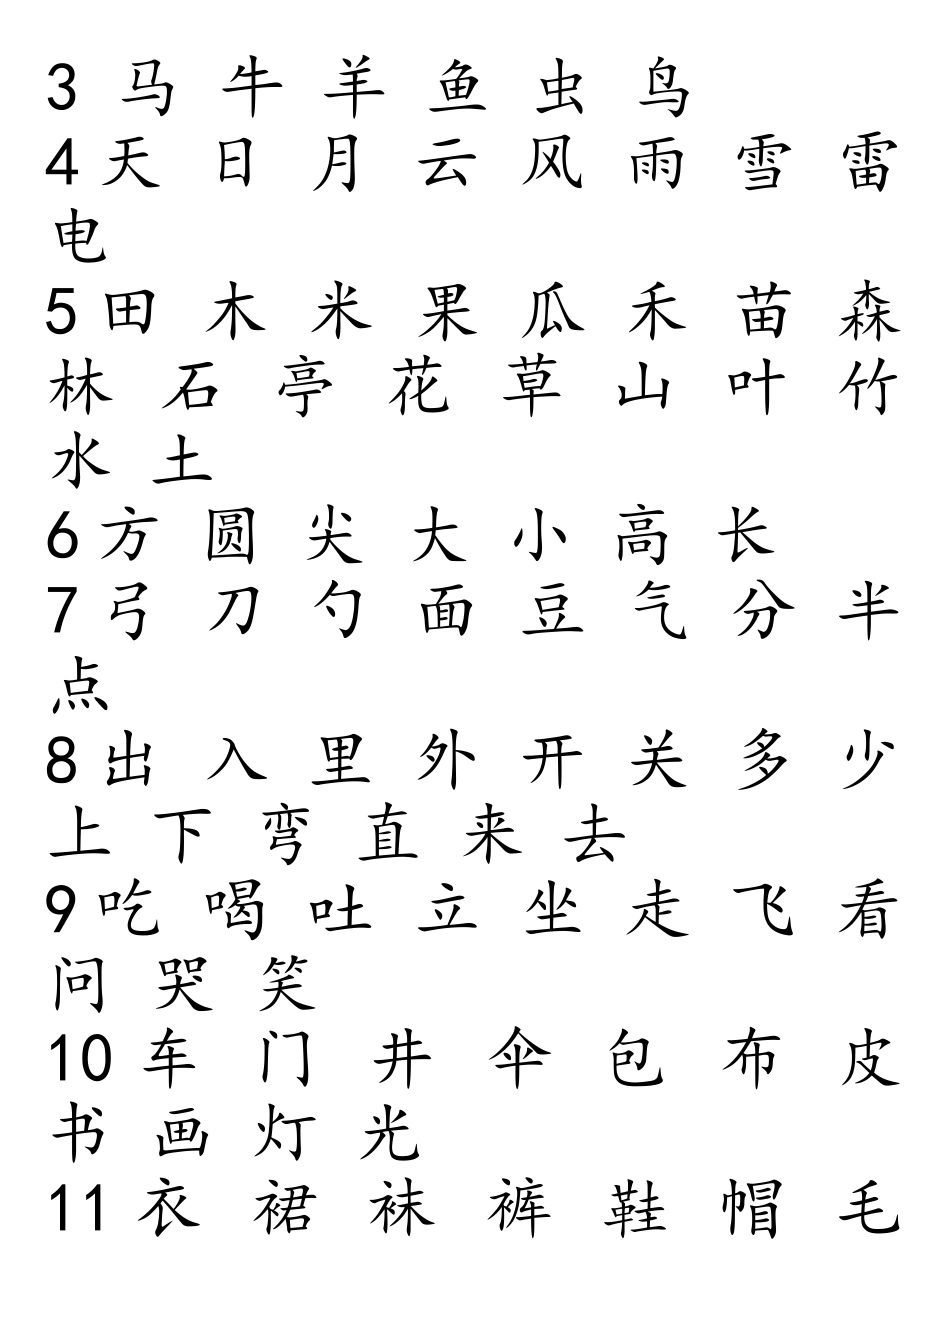 3 马 牛 羊 鱼 虫 鸟
4 天 日 月 云 风 雨 雪 雷
电
5 田 木 米 果 瓜 禾 苗 森
林 石 亭 花 草 山 叶 竹
水 土
6 方 圆 尖 大 小 高 长
7 弓 刀 勺 面 豆 气 分 半
点
8 出 入 里 外 开 关 多 少
上 下 弯 直 来 去
9 吃 喝 吐 立 坐 走 飞 看
问 哭 笑
10 车 门 井 伞 包 布 皮
书 画 灯 光
11 衣 裙 袜 裤 鞋 帽 毛